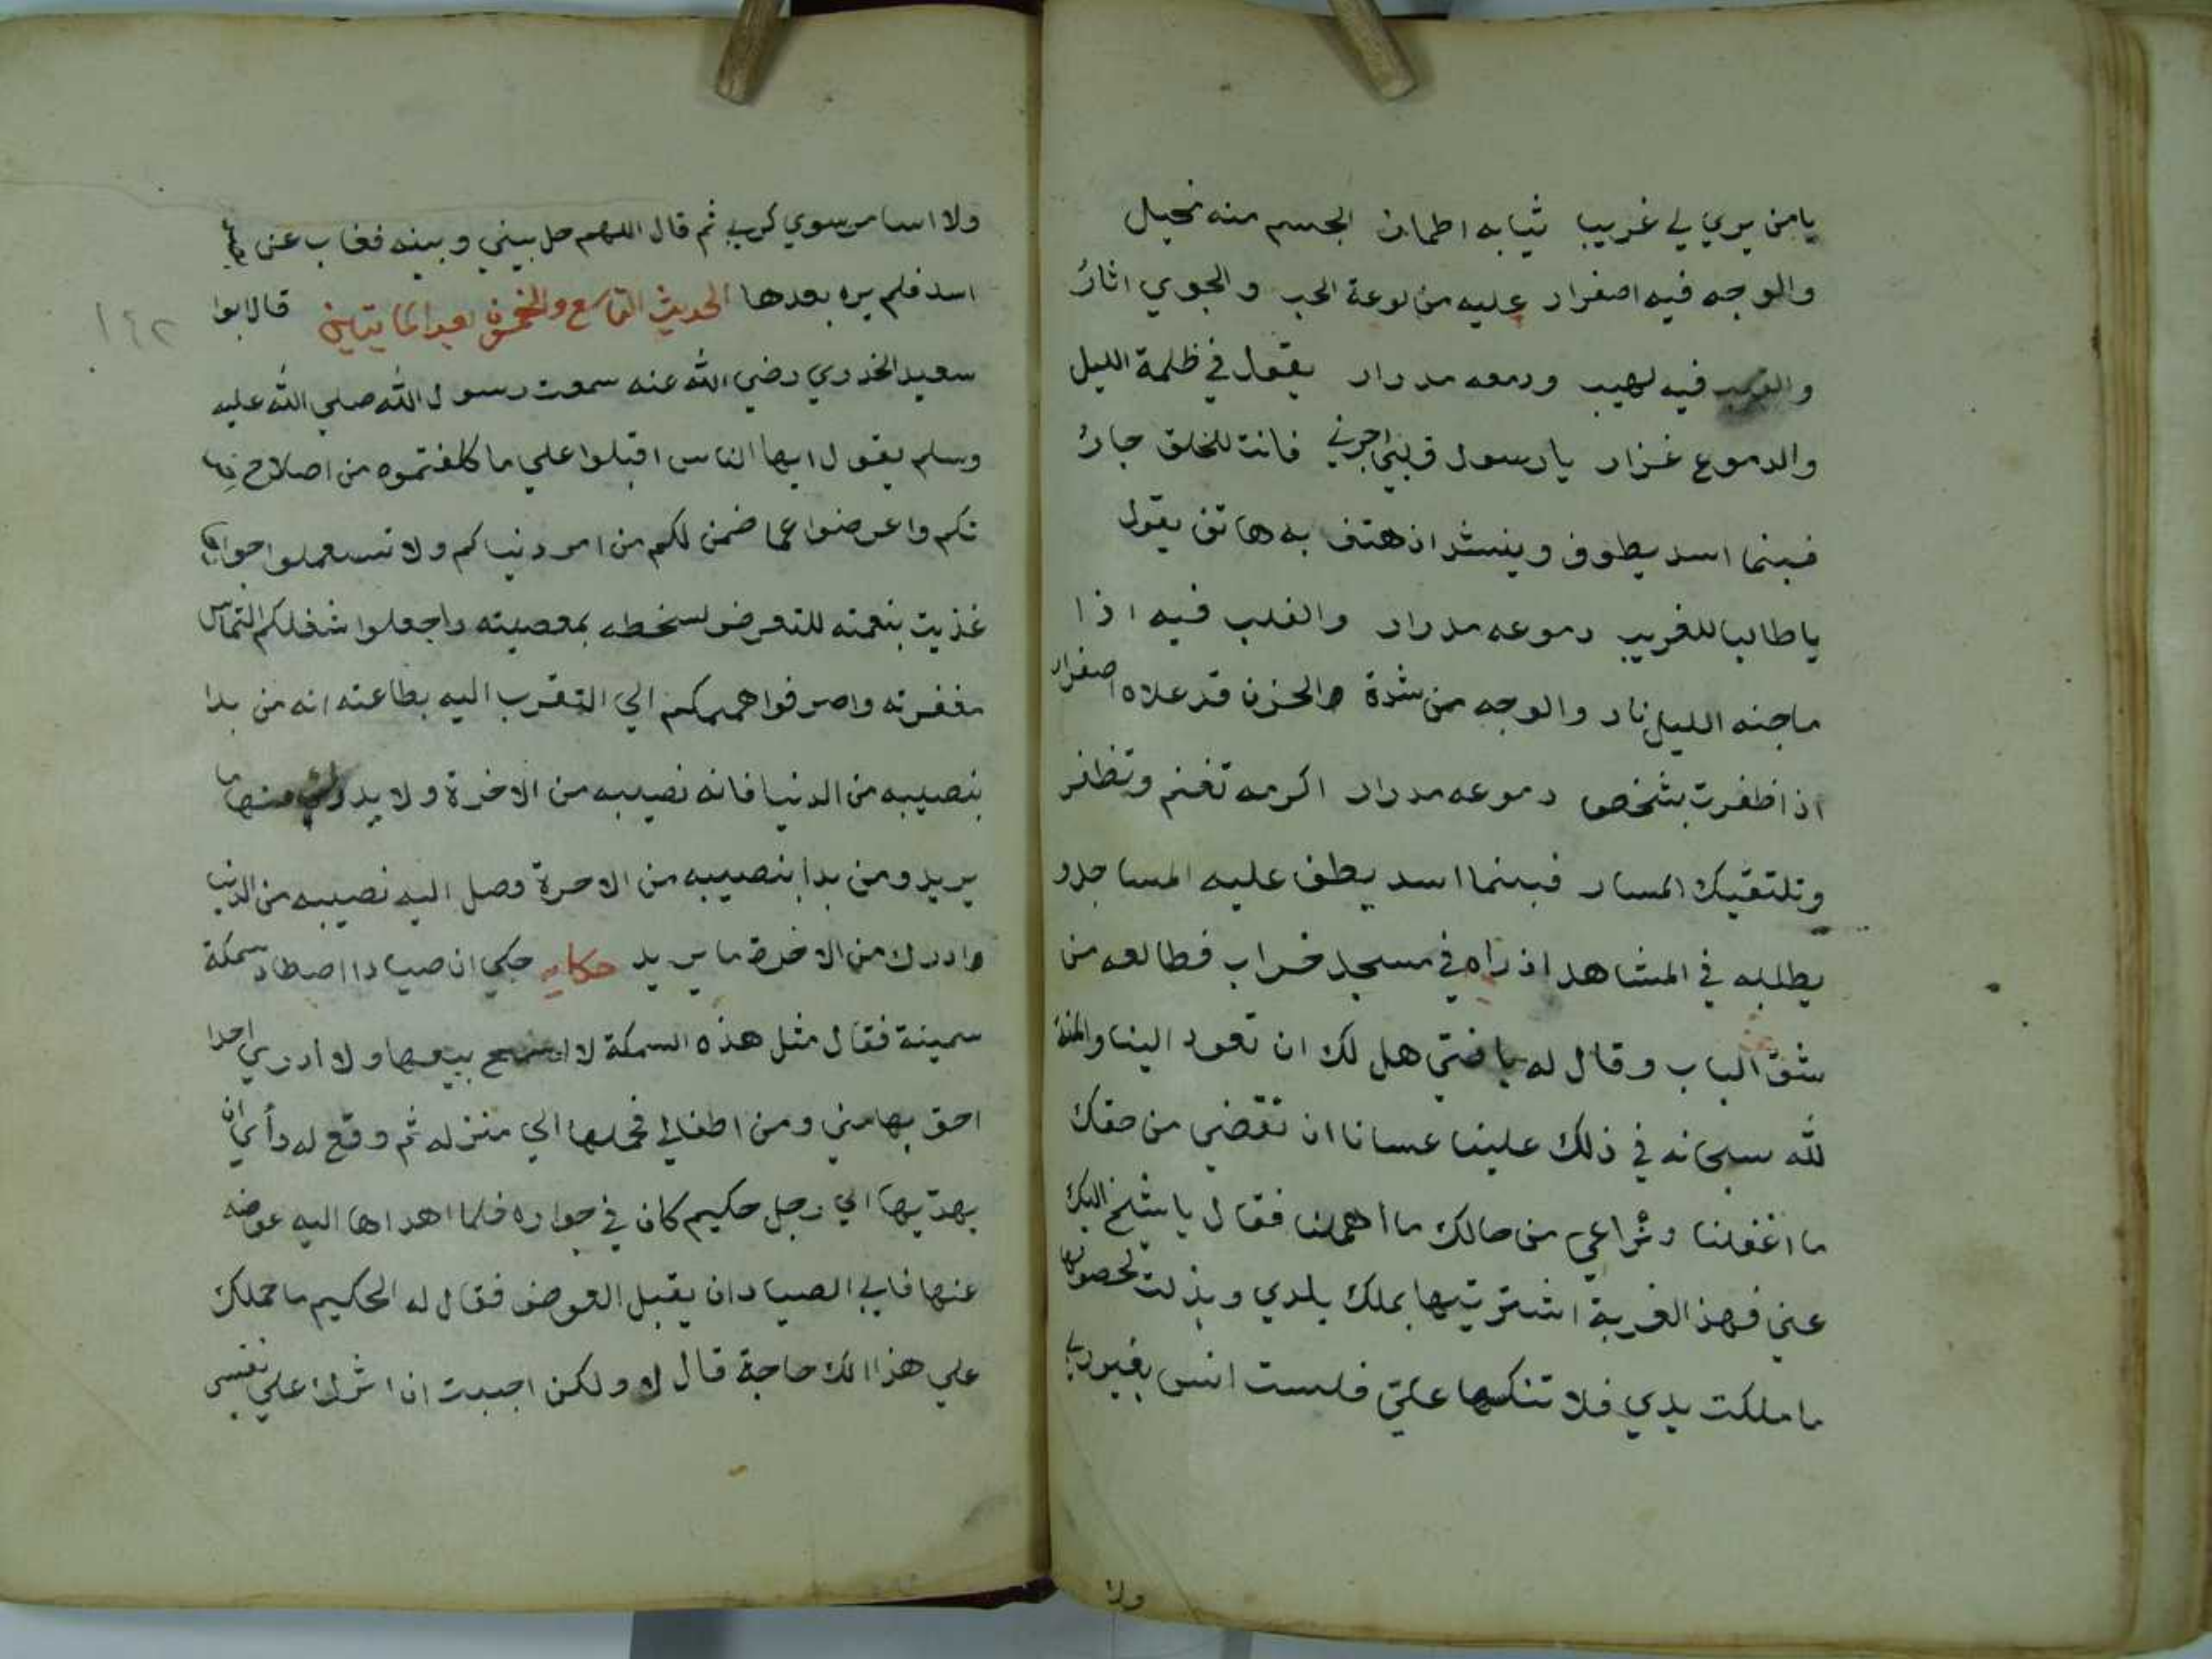 يامن يري لي غريبا ثيابه اطمان الجسم منه نحيل
والوجه فيه اصفرار عليه من لوعة الحب والجوي اثار
والقلب فيه لهيب ودمعه مدرار يقول في ظلمة الليل
والدموع غزار يا رسول قربني اجرني فانت للخلق جار
فبينما اسد يطوف وينشد اذ هتف به هاتف يقول
يا طالبا للغريب دموعه مدرار والقلب فيه اذا
ماجنه الليل نار والوجه من شدة الحزن قد علاه اصفرار
اذا ظفرت بشخص دموعه مدرار اكرمه تغنم وتظفر
وتلتقيك المسار فبينما اسد يطف عليه المساجد و
يطلبه في المشاهد اذ راه في مسجد خراب فطالعه من
شق الباب وقال له يا فتي هل لك ان تعود الينا والمنة
لله سبحانه في ذلك علينا عسانا ان نقضي من حقك
ما اغفلنا ونراعي من حالك ما اهملنا فقال يا شيخ اليك
عني فهذ الغربة اشتريتها بملك بلدي وبذلت لحصولها
ما ملكت يدي فلا تنكبها علي فلست انس بغير ربي
ولا
ولا اسامر سوي كربي ثم قال اللهم حل بيني وبينه فغاب عن
اسد فلم يره بعدها الحديث التاسع والخمسون بعد المايتين قال ابوا
سعيد الخدري رضي الله عنه سمعت رسول الله صلي الله عليه
وسلم يقول ايها الناس اقبلوا علي ما كلفتموه من اصلاح
تكم واعرضوا عما ضمن لكم من امر دنياكم ولا تستعملوا جوارحا
غذيت بنعمته للتعرض لسخطه بمعصيته واجعلوا شغلكم التماس
مغفرته واصرفوا هممكم الي التقرب اليه بطاعته انه من بدا
بنصيبه من الدنيا فاته نصيبه من الاخرة ولا يدرك منها ما
يريد ومن بدا بنصيبه من الاخرة وصل اليه نصيبه من الدنيا
وادرك من الاخرة ما يريد حكايه حكي ان صيادا اصطاد سمكة
سمينة فقال مثل هذه السمكة لا اسمح ببيعها ولا ادري احدا
احق بها مني ومن اطفالي فحملها الي منزله ثم وقع له رأي ان
يهديها الي رجل حكيم كان في جواره فلما اهداها اليه عوضه
عنها فابي الصياد ان يقبل العوض فقال له الحكيم ما حملك
علي هذا الك حاجة قال لا ولكن احببت ان اثرك علي نفسي
١٤٢